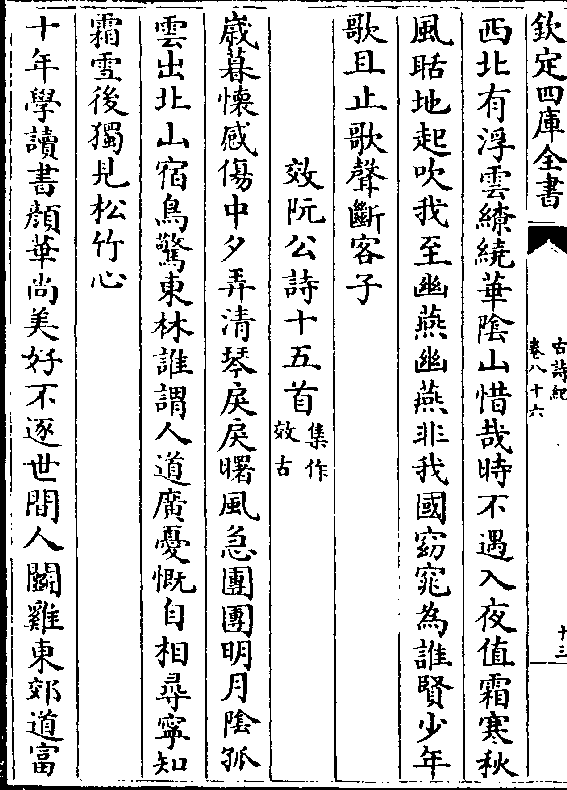 欽定四庫全書
古詩紀
卷八十六
十三
西北有浮雲繚繞華陰山惜哉時不遇入夜值霜寒秋
風聒地起吹我至幽燕幽燕非我國窈窕為誰賢少年
歌且止歌聲斷客子
效阮公詩十五首
集作
效古
歲暮懷感傷中夕弄清琴戾戾曙風急團團明月陰孤
雲出北山宿鳥驚東林誰謂人道廣憂慨自相尋寧知
霜雪後獨見松竹心
十年學讀書顏華尚美好不逐世間人鬭雞東郊道富